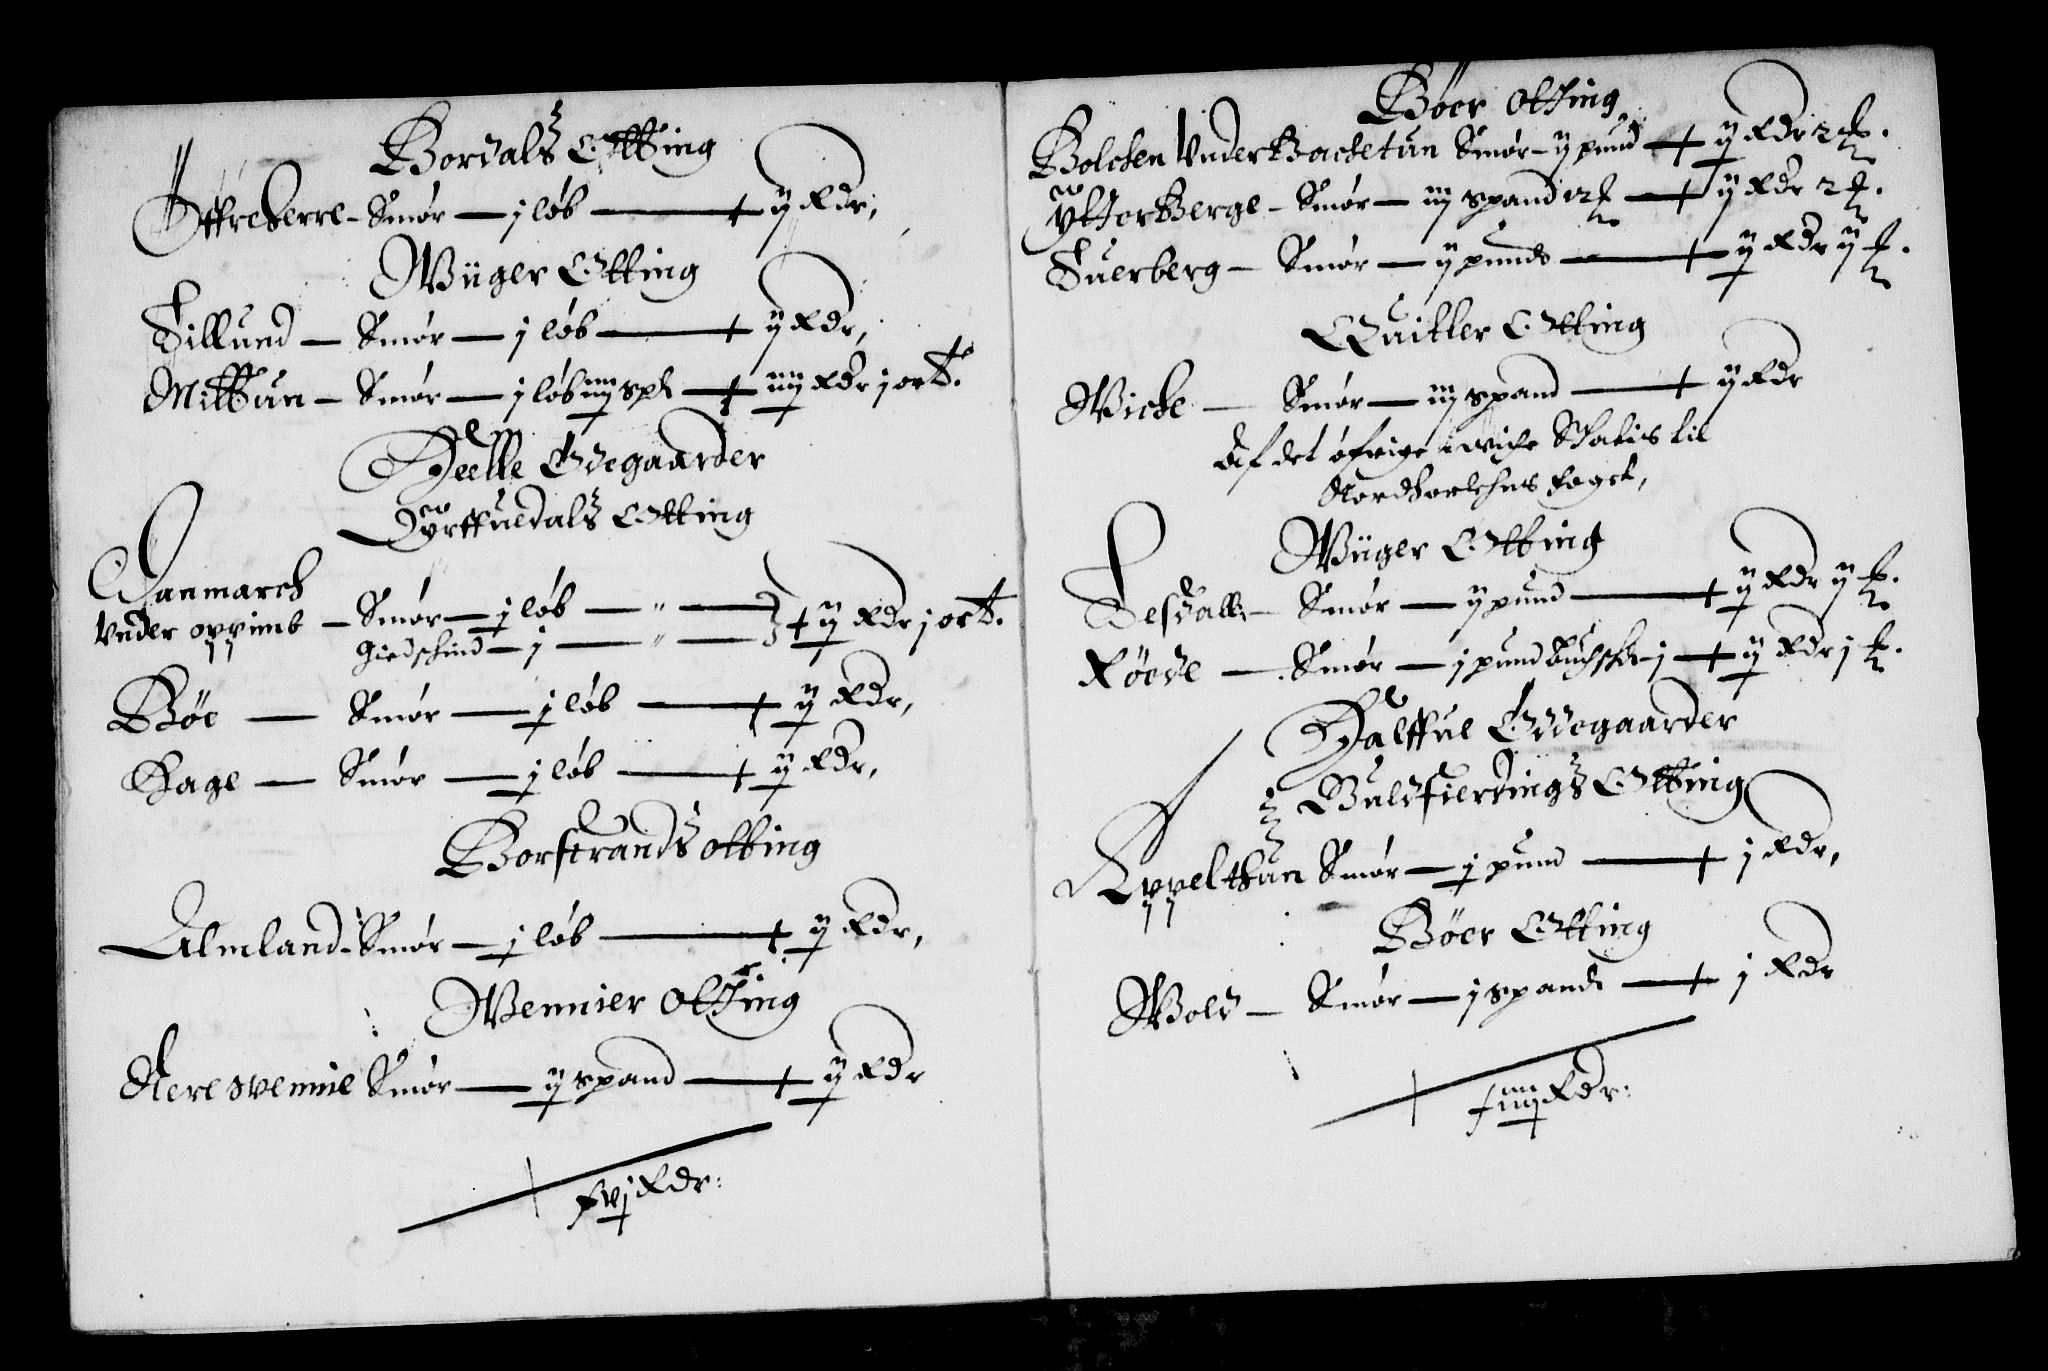 Bordals Otting
Offrekerre – Smør — j løb — ij Rdr,
Wiiger Otting
Fillund — Smør — j løb — ij Rdr,
Mittun – Smør — j løb iiij spd — iiij Rdr j ort.
Heelle Ødegaarder
Dyrffuedals Otting
Danmarch
Vnder oppimb – Smør — j løb — " — ij Rdr j ort.
Giedschind – j — " —
Bøe — Smør — j løb — ij Rdr,
Hage — Smør — j løb — ij Rdr,
Borstrands otting
Almeland – Smør – j løb — ij Rdr,
Wennier Otting
Nere Wennie Smør — ij spand — ij Rdr
xvj Rdr:
Bøer Otting
Bolchen Vnder Bachetun Smør – ij pund — ij Rdr 2 ß.
Ytterberge – Smør — iij spand 12 — ij Rdr 2 ß.
Suerberg – Smør — ij punds — ij Rdr ij ß.
Quitler Otting
Wicke — Smør — iij spand — ij Rdr
Af det øfrige i wiche Schatis til
Nordhorlehns foget,
Wiiger Otting
Tesdall – Smør — ij pund — ij Rdr ij ß.
Røede — Smør — j pund Buchsk: j — ij Rdr j ß.
Halffue Ødegaarder
Guldfierrings Otting
Appelthun Smør — j pund — j Rdr,
Bøer Otting
Wold — Smør — j spand — j Rdr
xiiij Rdr: